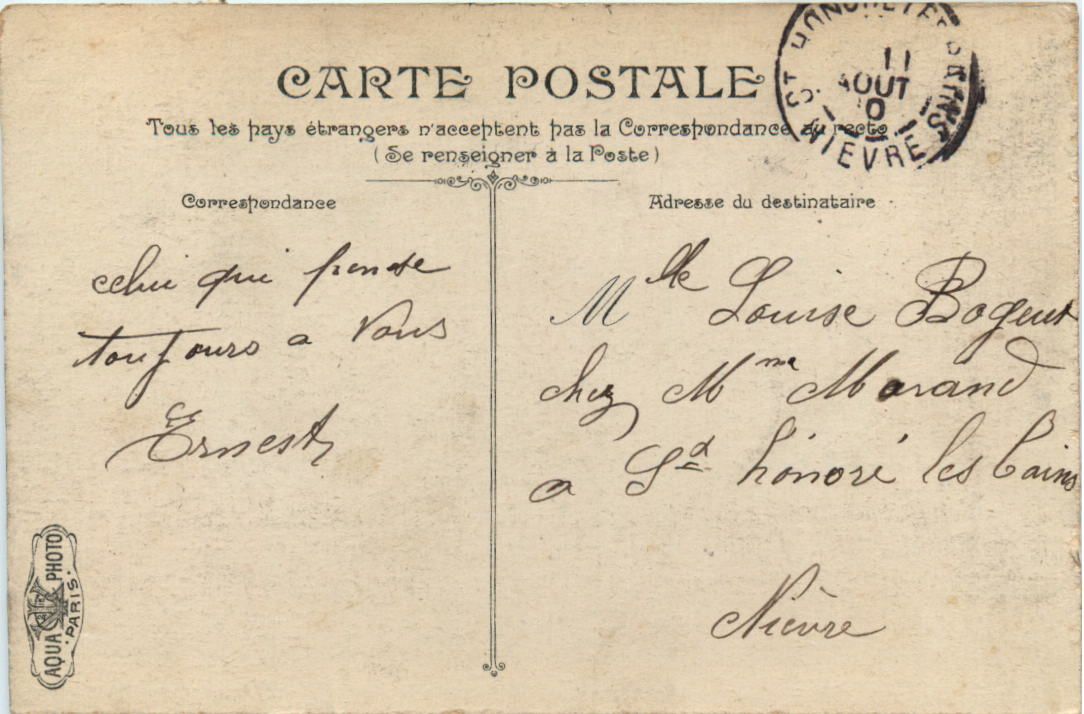 CARTE POSTALE
Tous les pays étrangers n'acceptent pas la Correspondance au recto
(Se renseigner à la Poste)
Correspondance
celui qui pense
toujours a Vous
Ernest
Adresse du destinataire
Mlle Louise Bogeut
chez Mme Morand
a St hónoré les bains
Nièvre
ST HONORE LES BAINS
11
AOUT
10
NIEVRE
AQUA PHOTO
PARIS